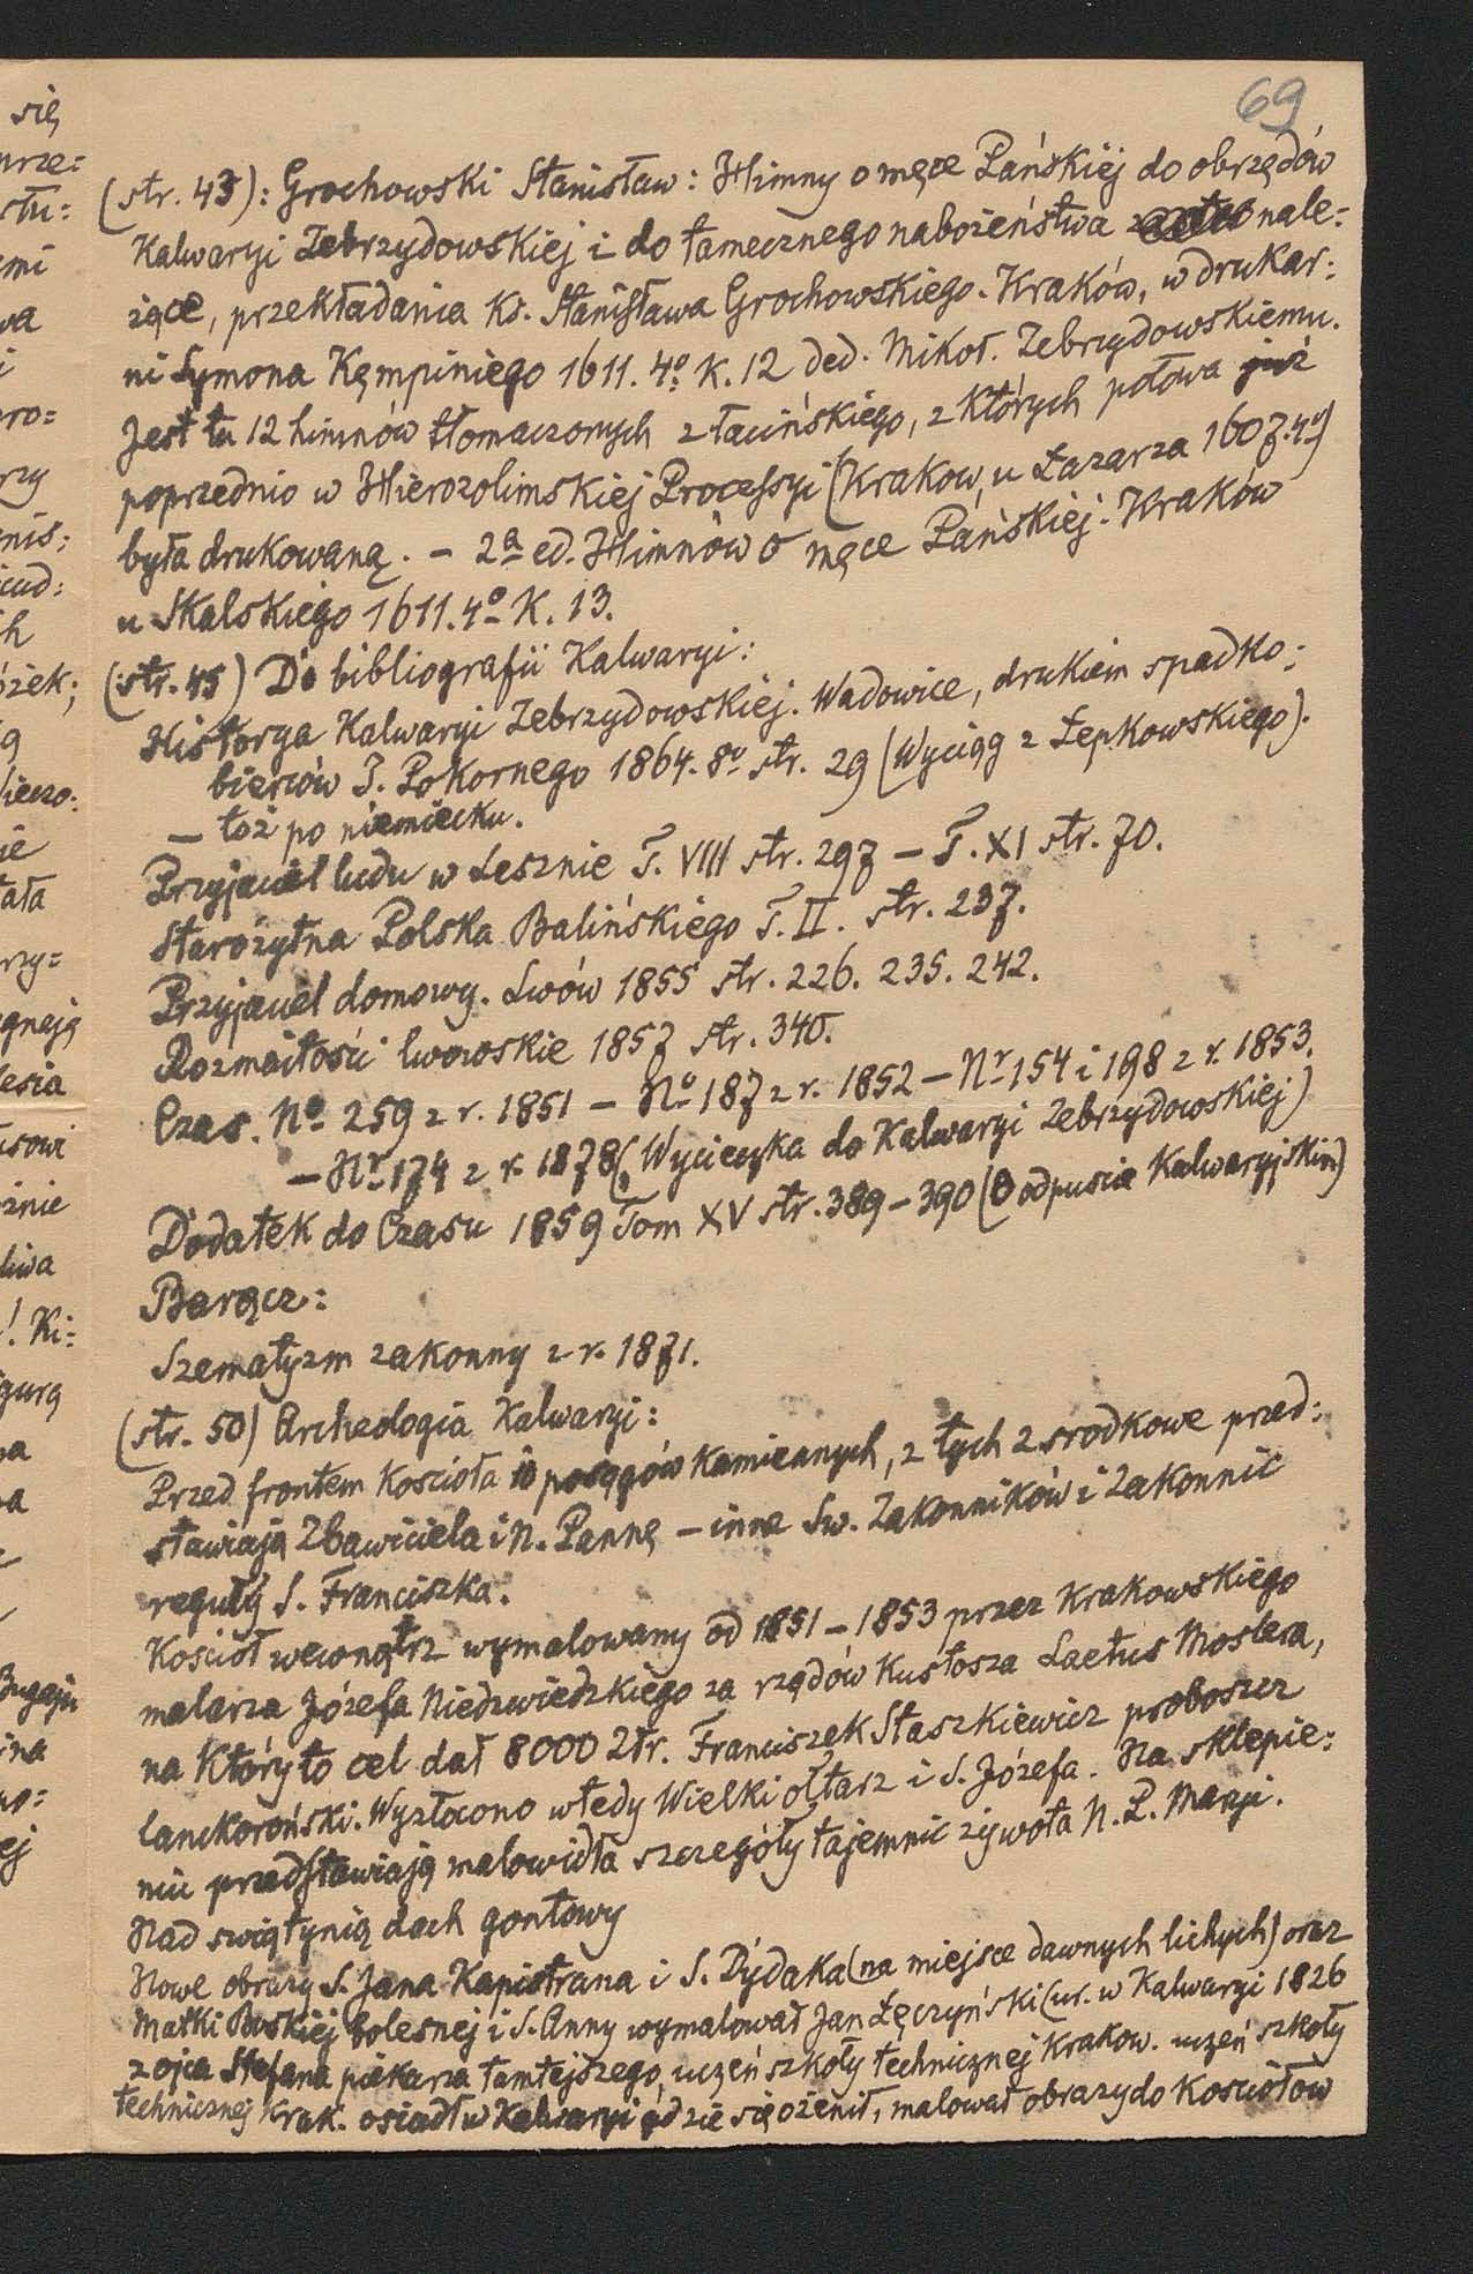 69
(str. 43): Grochowski Stanisław: Himny o męce Pańskiej do obrzędów
Kalwaryi Zebrzydowskiej i do tamecznego nabożeństwa nale=
żące, przekładania Ks. Stanisława Grochowskiego. Kraków, w drukar=
ni Symona Kempiniego 1611. 4º K. 12 ded. Mikoł. Zebrzydowskiemu.
Jest tu 12 himnów tłomaczonych z łacińskiego, z których połowa już
poprzednio w Hierozolimskiej Processyi (Krakow, u Łazarza 1607. 4º)
była drukowaną. – 2ª ed. Himnów o męce Pańskiej. Kraków
u Skalskiego 1611. 4º K. 13.
(str. 45) Do bibliografii Kalwaryi:
Historya Kalwaryi Zebrzydowskiej. Wadowice, drukiem spadko=
bierców J. Pokornego 1864. 8º str. 29 (Wyciąg z Łepkowskiego).
– toż po niemiecku.
Przyjaciel ludu w Lesznie T. VIII str. 297 – T. XI str. 70.
Starożytna Polska Balińskiego T. II. str. 237.
Przyjaciel domowy. Lwów 1855 str. 226. 235. 242.
Rozmaitości lwowskie 1857 str. 340.
Czas. Nº 259 z r. 1851 – Nº 187 z r. 1852 – Nr 154 i 198 z r. 1853.
– Nr 174 z r. 1878 (Wycieczka do Kalwaryi Zebrzydowskiej)
Dodatek do Czasu 1859 Tom XV str. 389–390 (O odpuście Kalwaryjskim)
Barącz:
Szematyzm zakonny z r. 1871.
(str. 50) Archeologia Kalwaryi:
Przed frontem Kościoła 10 posągów Kamiennych, z tych 2 srodkowe przed=
stawiają Zbawiciela i N. Pannę – inne Św. Zakonników i Zakonnic
reguły S. Franciszka.
Kościoł wewnątrz wymalowany od 1851–1853 przez Krakowskiego
malarza Józefa Niedzwiedzkiego za rządów Kustosza Laetus Moslera,
na Który to cel dał 8000 Złr. Franciszek Staszkiewicz proboszcz
lanckoroński. Wyzłocono wtedy Wielki ołtarz i S. Józefa. Na sklepie=
niu przedstawiają malowidła szczegóły tajemnic żywota N. P. Maryi.
Nad swiątynią dach gontowy
Nowe obrazy S. Jana Kapistrana i S. Dydaka (na miejsce dawnych lichych) oraz
Matki Boskiej bolesnej i S. Anny wymalował Jan Łęczyński (ur. w Kalwaryi 1826
z ojca Stefana piekarza tamtejszego, uczeń szkoły technicznej Krakow. uczeń szkoły
technicznej Krak. osiadł w Kalwaryi gdzie się ożenił, malował obrazy do Kosciołow